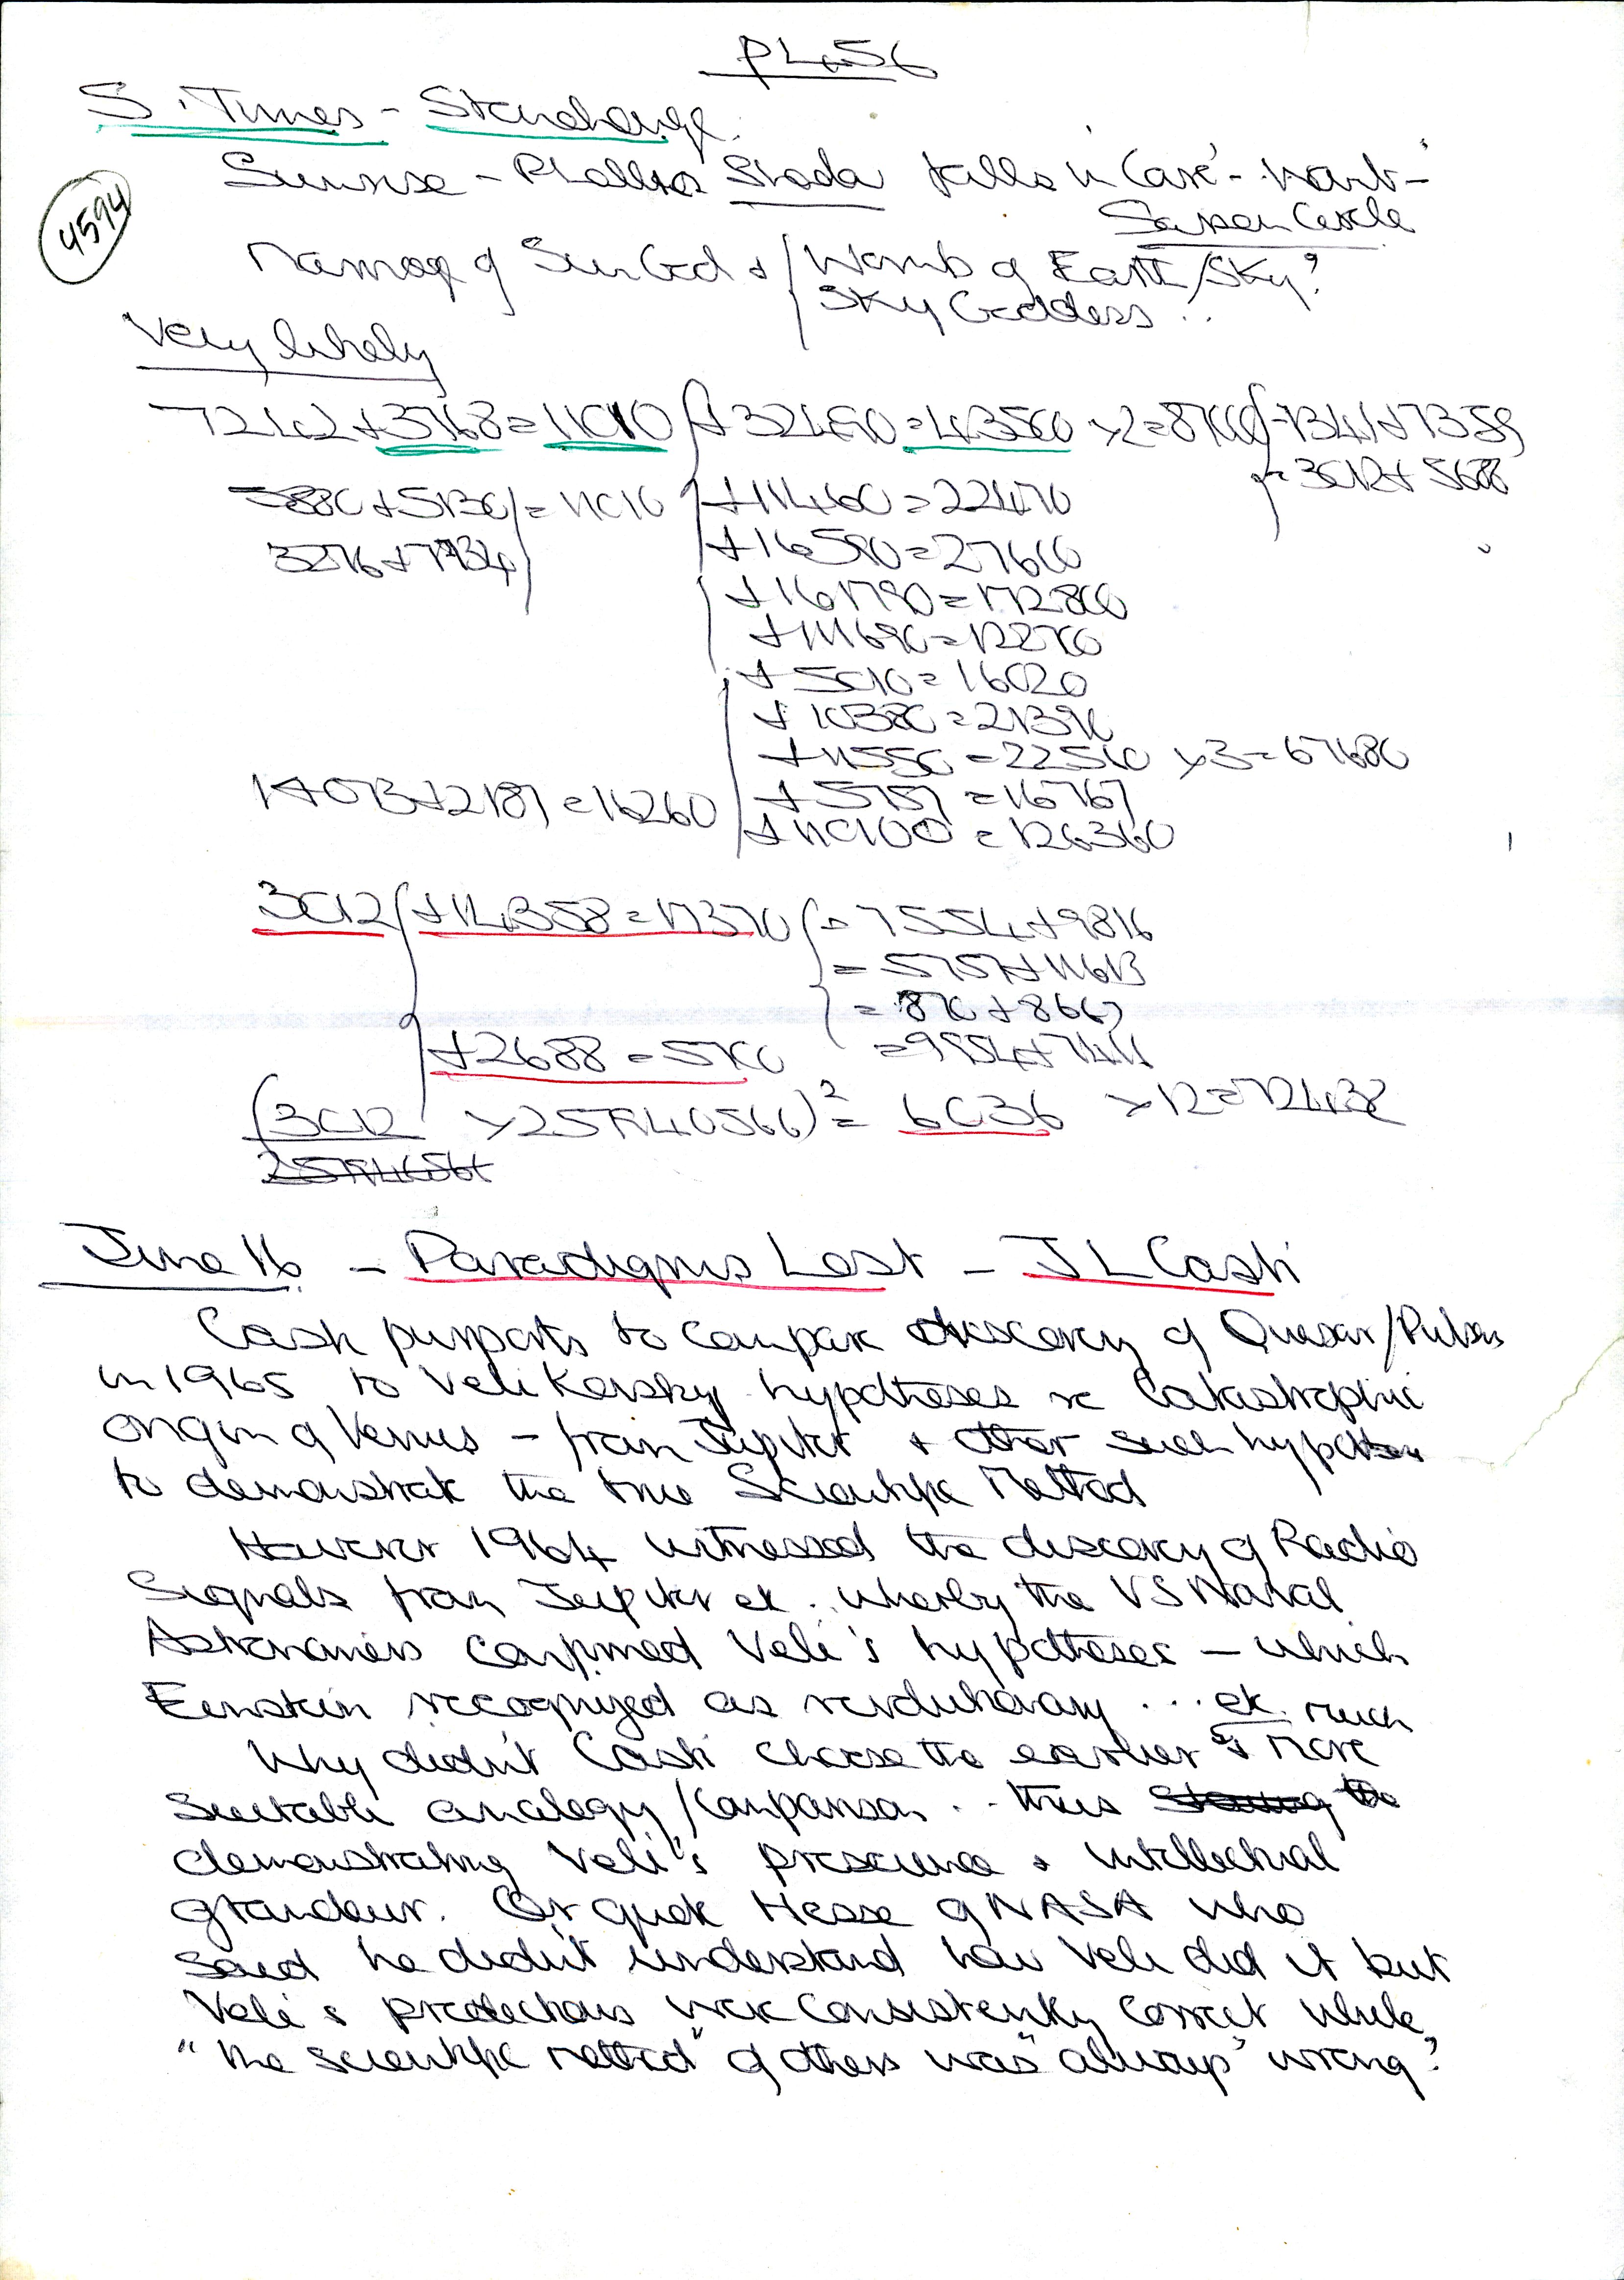 PL456
S. Times - Stonehenge.
Sunrise - Phallic Shadow falls in 'Cave' - Womb -
Sarsen Circle
4594
Marriage of Sun God + / Womb of Earth/Sky?
Sky Goddess ..
Very likely
7242 + 3768 = 11010 + 32490 = 43500 x 2 = 87000 = 1341 + 7359
= 3012 + 5688
5880 + 5130 = 11010 + 11460 = 22470
3276 + 7734 + 16590 = 27600
+ 161790 = 172800
+ 11690 = 12870
+ 5010 = 16020
+ 10380 = 21390
+ 11550 = 22560 x 3 = 67680
14073 + 2187 = 16260 + 5757 = 16767
+ 110100 = 126360
3012 + 14358 = 17370 = 7554 + 9816
= 5757 + 11613
= 870 + 8667
+ 2688 = 5700 = 9954 + 7416
(3012 x 2575140566)² = 6036 x 12 = 72432
June 16 - Paradigms Lost - J L Casti
Casti purports to compare discovery of Quasar/Pulsars
in 1965 to Velikovsky hypotheses re Catastrophic
origin of Venus - from Jupiter + other such hypotheses
to demonstrate the true Scientific Method
However 1964 witnessed the discovery of Radio
Signals from Jupiter etc. whereby the US Naval
Astronomers confirmed Veli's hypotheses - which
Einstein recognized as revolutionary ... etc. much
Why didn't Casti choose the earlier & more
suitable analogy/comparison .. thus
demonstrating Veli's prescience + intellectual
grandeur. Or quote Hesse of NASA who
said he didn't understand how Veli did it but
Veli's predictions were consistently correct while
"the scientific method" of others was "always" wrong?